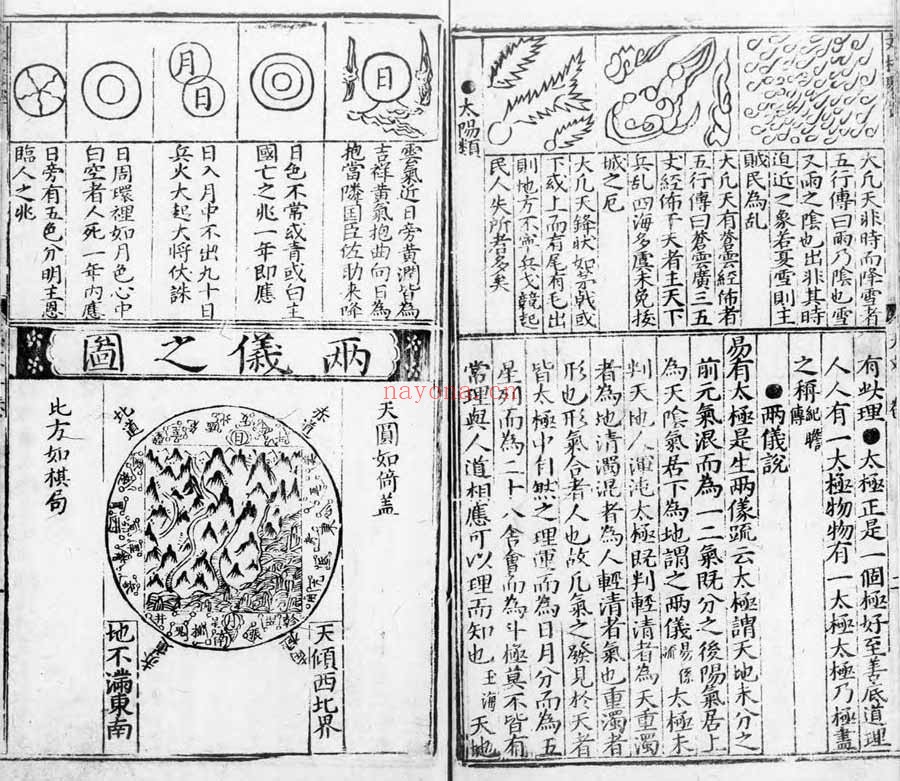 大凡天非時而降雪者
五行傳曰雨乃陰也雪
又雨之陰也出非其時
迫近之象若夏雪則主
賊民為乱
大凡天有蒼雲經佈者
五行傳曰蒼雲廣三五
丈經佈于天者主天下
兵乱四海多虞未免按
城之厄
大凡天鋒狀如茅戟或
下或上而有尾有毛出
則地方不寧兵戈競起
民人失所者多矣
●太陽類
有此理●太極正是一個極好至善底道理
人人有一太極物物有一太極太極乃極盡
之稱紀聸傳
●兩儀說
易有太極是生兩儀疏云太極謂天地未分之
前元氣混而為一二氣既分之後陽氣居上
為天陰氣居下為地謂之兩儀易係疏太極未
判天地人渾沌太極既判輕清者為天重濁
者為地清濁混者為人輕清者氣也重濁者
形也形氣合者人也故凡氣之發見於天者
皆太極中自然之理運而為日月分而為五
星列而為二十八舍會而為斗極莫不皆有
常理與人道相應可以理而知也玉海天地
日
雲氣近日旁黃潤皆為
吉祥黃氣抱曲向日為
抱當隣国臣佐助来降
日色不常或青或白主
國亡之兆一年即應
月
日
日入月中不出九十日
兵火大起大将伏誅
日周環裡如月色心中
曰空者人死一年内應
日旁有五色分明主恩
臨人之兆
兩儀之圖
天圓如倚盖
赤道
北道
比方如棋局
日
月
井
天傾西北界
地不滿東南
nayona.cn